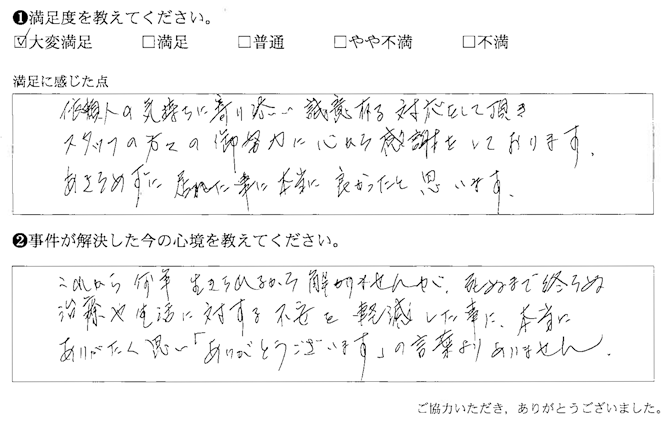 ❶満足度を教えてください。
☑大変満足 □満足 □普通 □やや不満 □不満
満足に感じた点
依頼人の気持ちに寄り添い 誠意有る 対応をして頂き
スタッフの方々の 御努力に 心から 感謝を しております。
あきらめずに 居れた事に 本当に 良かったと 思います。
❷事件が解決した今の心境を教えてください。
これから 何年 生きられるから 解りませんが、死ぬまで終らぬ
治療や生活に 対する 不安を 軽減した事に、本当に
ありがたく思い「ありがとうございます」の言葉よりありません。
ご協力いただき、ありがとうございました。